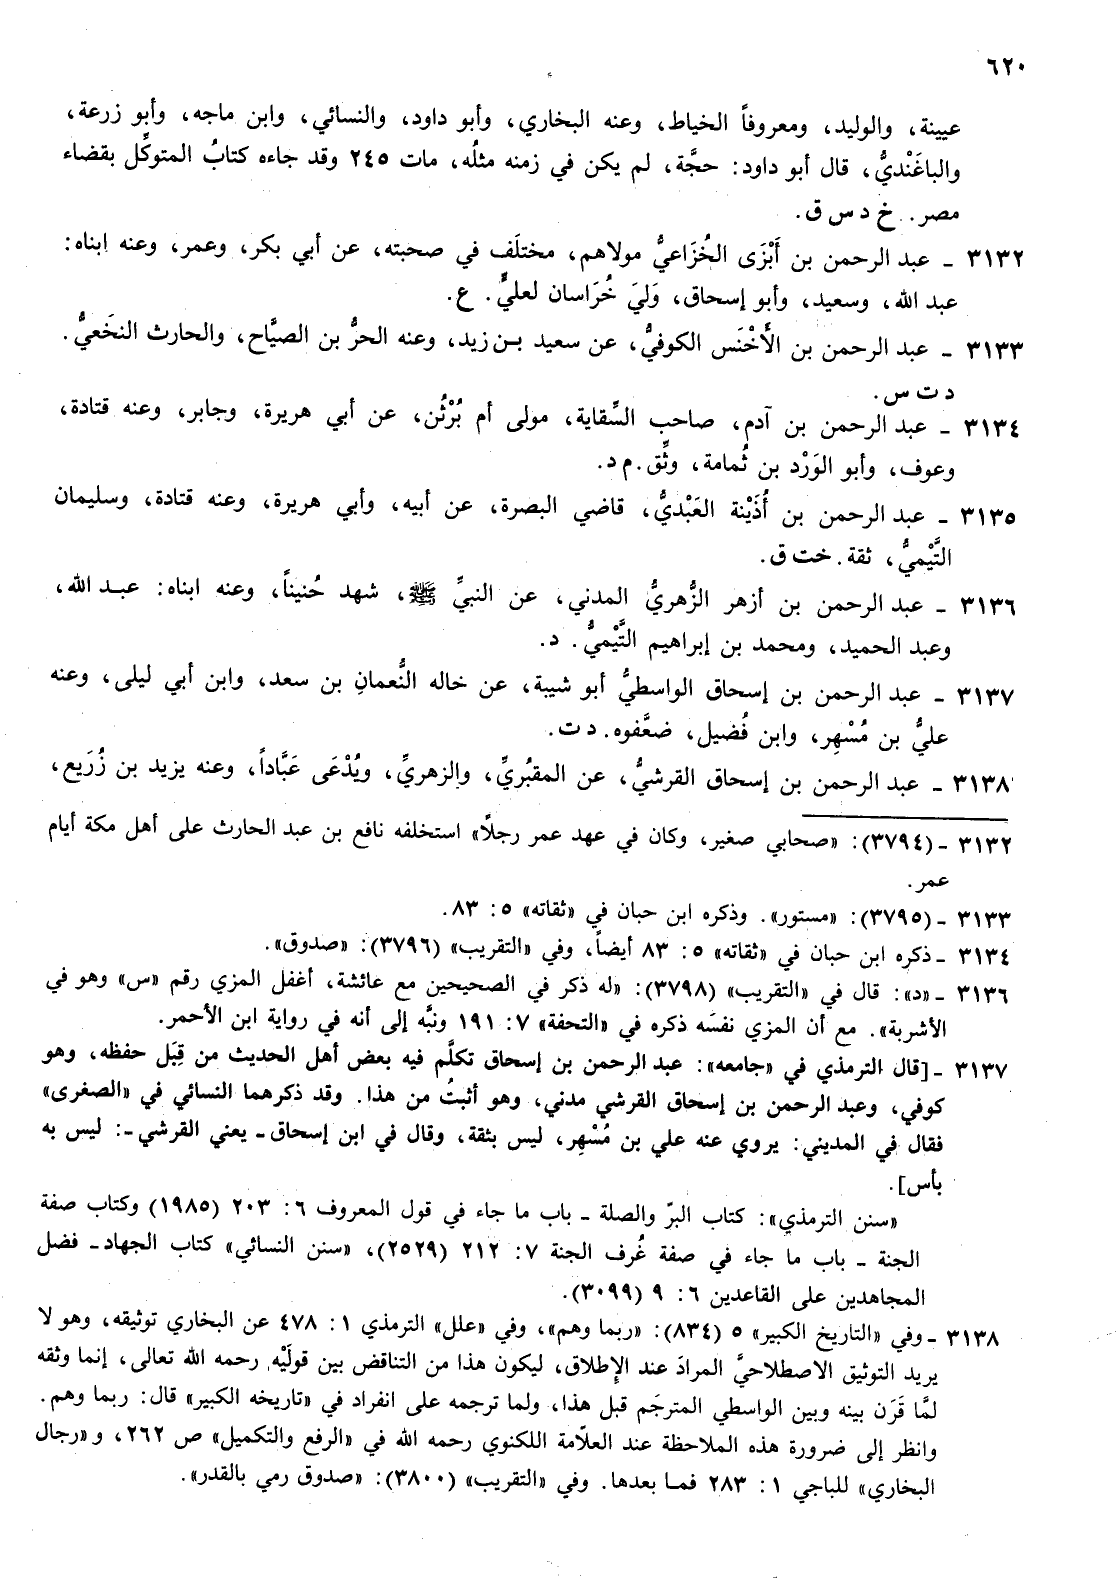 ٦٢٠
عيينة، والوليد، ومعروفاً الخياط، وعنه البخاري، وأبو داود، والنسائي، وابن ماجه، وأبو زرعة،
والباغَنْديُّ، قال أبو داود: حجَّة، لم يكن في زمنه مثلُه، مات ٢٤٥ وقد جاءه كتابُ المتوكِّل بقضاء
مصر. خ د س ق.
٣١٣٢ ـ عبد الرحمن بن أَبْزَى الخُزَاعيُّ مولاهم، مختلَف في صحبته، عن أبي بكر، وعمر، وعنه ابناه:
عبد الله، وسعيد، وأبو إسحاق، وَليَ خُرَاسان لعليٍّ. ع.
٣١٣٣ ـ عبد الرحمن بن الأَخْنَس الكوفيُّ، عن سعيد بـن زيد، وعنه الحرُّ بن الصيَّاح، والحارث النخَعيُّ.
د ت س.
٣١٣٤ ـ عبد الرحمن بن آدم، صاحب السِّقاية، مولى أم بُرْثُن، عن أبي هريرة، وجابر، وعنه قتادة،
وعوف، وأبو الوَرْد بن ثُمامة، وثِّق. م د.
٣١٣٥ ـ عبد الرحمن بن أُذَيْنة العَبْديُّ، قاضي البصرة، عن أبيه، وأبي هريرة، وعنه قتادة، وسليمان
التَّيْميُّ، ثقة. خت ق.
٣١٣٦ ـ عبد الرحمن بن أزهر الزُّهريُّ المدني، عن النبيِّ ﷺ، شهد حُنيناً، وعنه ابناه: عبـد الله،
وعبد الحميد، ومحمد بن إبراهيم التَّيْميُّ. د.
٣١٣٧ ـ عبد الرحمن بن إسحاق الواسطيُّ أبو شيبة، عن خاله النُّعمانِ بن سعد، وابن أبي ليلى، وعنه
عليُّ بن مُسْهِر، وابن فُضيل، ضعَّفوه. د ت.
٣١٣٨ ـ عبد الرحمن بن إسحاق القرشيُّ، عن المقبُريِّ، والزهريِّ، ويُدْعَى عَبَّاداً، وعنه يزيد بن زُرَيع،
٣١٣٢ ـ (٣٧٩٤): «صحابي صغير، وكان في عهد عمر رجلاً» استخلفه نافع بن عبد الحارث على أهل مكة أيام
عمر.
٣١٣٣ ـ (٣٧٩٥): «مستور». وذكره ابن حبان في «ثقاته» ٥: ٨٣.
٣١٣٤ ـ ذكره ابن حبان في «ثقاته» ٥: ٨٣ أيضاً، وفي «التقريب» (٣٧٩٦): «صدوق».
٣١٣٦ ـ «د»: قال في «التقريب» (٣٧٩٨): «له ذكر في الصحيحين مع عائشة، أغفل المزي رقم «س» وهو في
الأشربة». مع أن المزي نفسَه ذكره في «التحفة» ٧: ١٩١ ونبَّه إلى أنه في رواية ابن الأحمر.
٣١٣٧ ـ [قال الترمذي في «جامعه»: عبد الرحمن بن إسحاق تكلَّم فيه بعض أهل الحديث من قِبَل حفظه، وهو
كوفي، وعبد الرحمن بن إسحاق القرشي مدني، وهو أثبتُ من هذا. وقد ذكرهما النسائي في «الصغرى»
فقال في المديني: يروي عنه علي بن مُسْهِر، ليس بثقة، وقال في ابن إسحاق ـ يعني القرشي ـ: ليس به
بأس].
«سنن الترمذي»: كتاب البرّ والصلة ـ باب ما جاء في قول المعروف ٦: ٢٠٣ (١٩٨٥) وكتاب صفة
الجنة ـ باب ما جاء في صفة غُرف الجنة ٧: ٢١٢ (٢٥٢٩)، «سنن النسائي» كتاب الجهاد ـ فضل
المجاهدين على القاعدين ٦: ٩ (٣٠٩٩).
٣١٣٨ ـ وفي «التاريخ الكبير» ٥ (٨٣٤): «ربما وهم»، وفي «علل» الترمذي ١: ٤٧٨ عن البخاري توثيقه، وهو لا
يريد التوثيق الاصطلاحيَّ المرادَ عند الإِطلاق، ليكون هذا من التناقض بين قولَيْه رحمه الله تعالى، إنما وثقه
لمَّا قَرَن بينه وبين الواسطي المترجَم قبل هذا، ولما ترجمه على انفراد في «تاريخه الكبير» قال: ربما وهم.
وانظر إلى ضرورة هذه الملاحظة عند العلاّمة اللكنوي رحمه الله في «الرفع والتكميل» ص ٢٦٢، و«رجال
البخاري» للباجي ١: ٢٨٣ فمـا بعدها. وفي «التقريب» (٣٨٠٠): «صدوق رمي بالقدر».